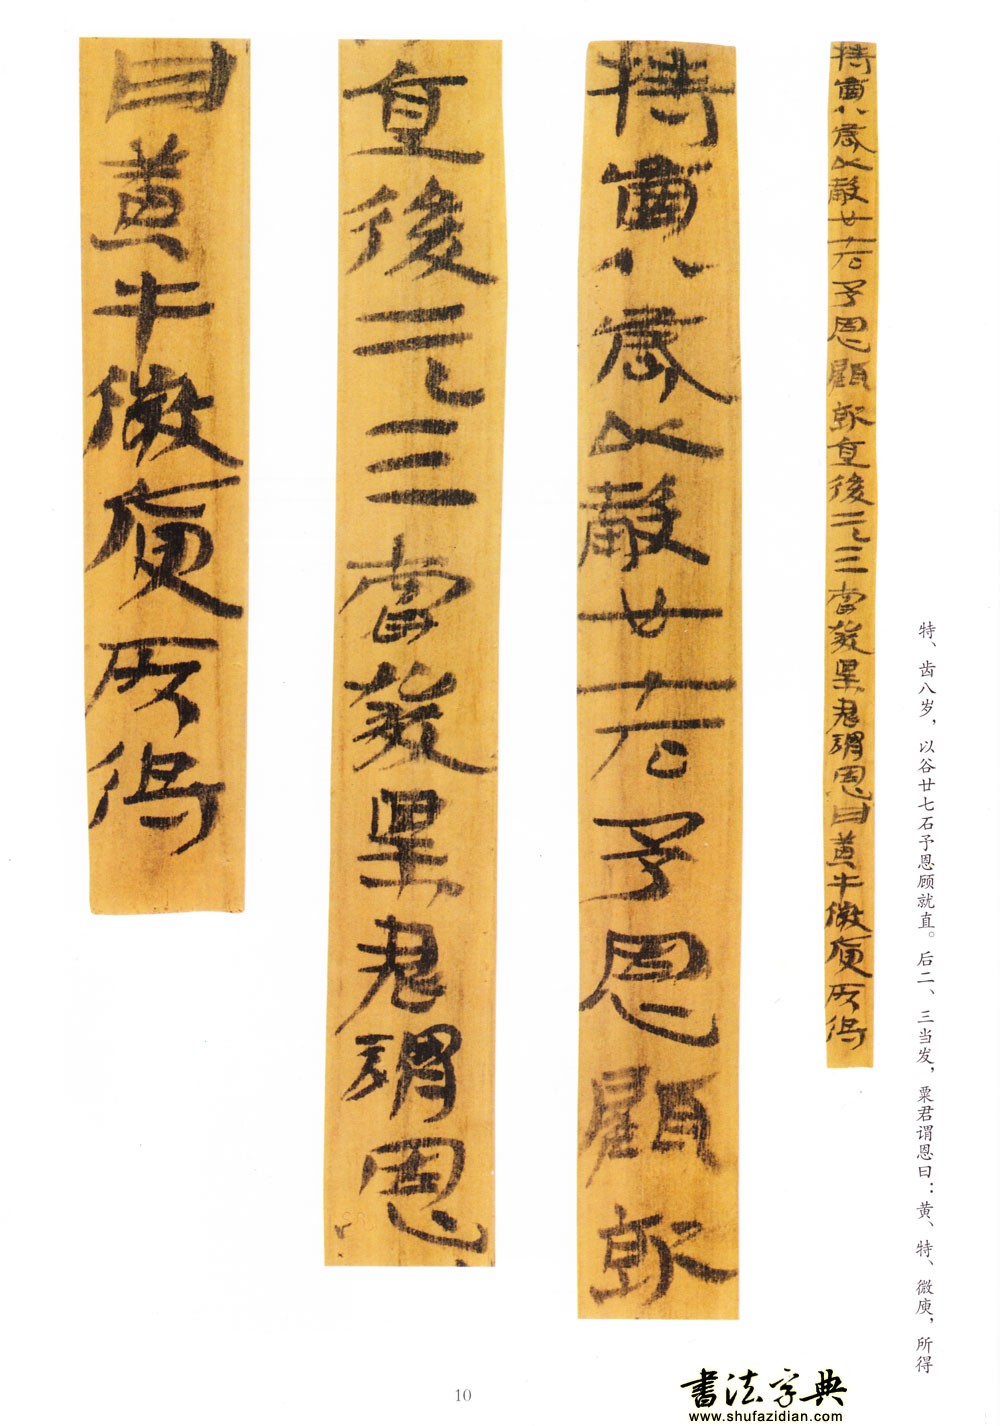 特、齿八岁，以谷廿七石予恩顾就直。后二、三当发，粟君谓恩曰：黄、特、微庾，所得
特齒八歲以穀廿七石予恩顧就直後二三當發粟君謂恩曰黃牛微庾所得
特齒八歲以穀廿七石予恩顧就
直後二三當發粟君謂恩
曰黃牛微庾所得
10
書法字典
www.shufazidian.com